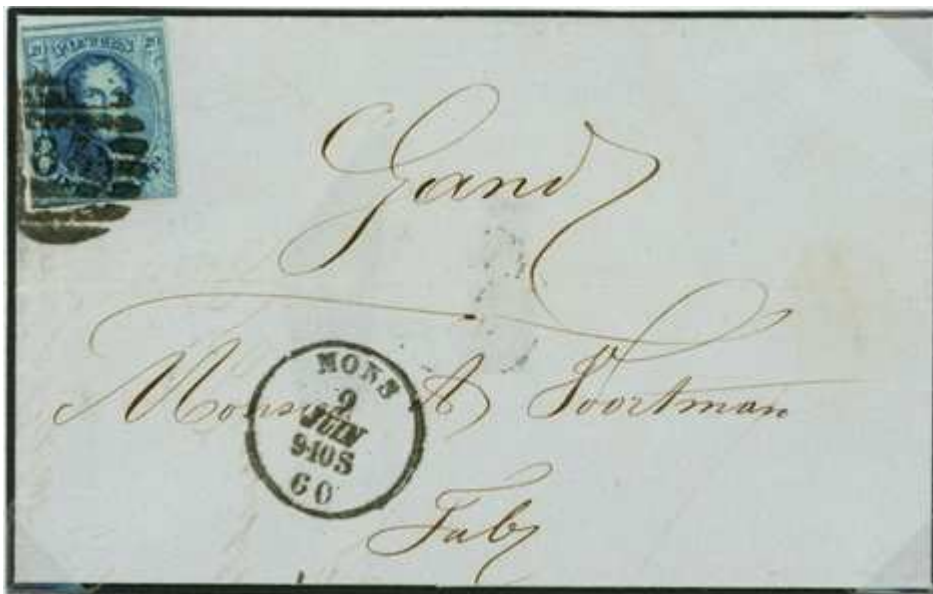 Gand
Mons A Voortman
Fab
MONS
9
JUIN
9-10S
60